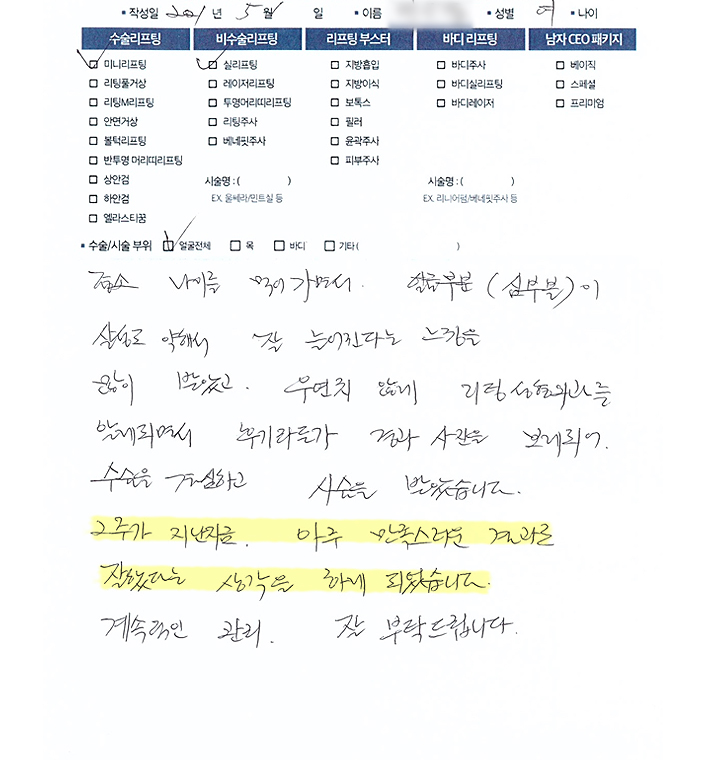 ▪ 작성일 2021년 5월 일 ▪ 이름 ▪ 성별 여 ▪ 나이
수술리프팅 비수술리프팅 리프팅 부스터 바디 리프팅 남자 CEO 패키지
미니리프팅 실리프팅 지방흡입 바디주사 베이직
리팅풀거상 레이저리프팅 지방이식 바디실리프팅 스페셜
리팅M리프팅 투명머리띠리프팅 보톡스 바디레이저 프리미엄
안면거상 리팅주사 필러
볼턱리프팅 베네핏주사 윤곽주사
반투명 머리띠리프팅 피부주사
상안검 시술명 : ( ) 시술명 : ( )
하안검 EX. 울쎄라/민트실 등 EX. 리니어펌/베네핏주사 등
엘라스티꿈
▪ 수술/시술 부위 얼굴전체 목 바디 기타 ( )
평소 나이를 먹어가면서. 얼굴부분 (심부볼)이
살성도 약해서 잘 늘어진다는 느낌을
많이 받았고. 우연치 않게 리팅성형외과를
알게되면서 후기라든가 경과 사진을 보게되어.
수술을 결심하고 시술을 받았습니다.
2주가 지난지금. 아주 만족스러운 결과로
잘했다는 생각을 하게 되었습니다.
계속적인 관리. 잘 부탁드립니다.